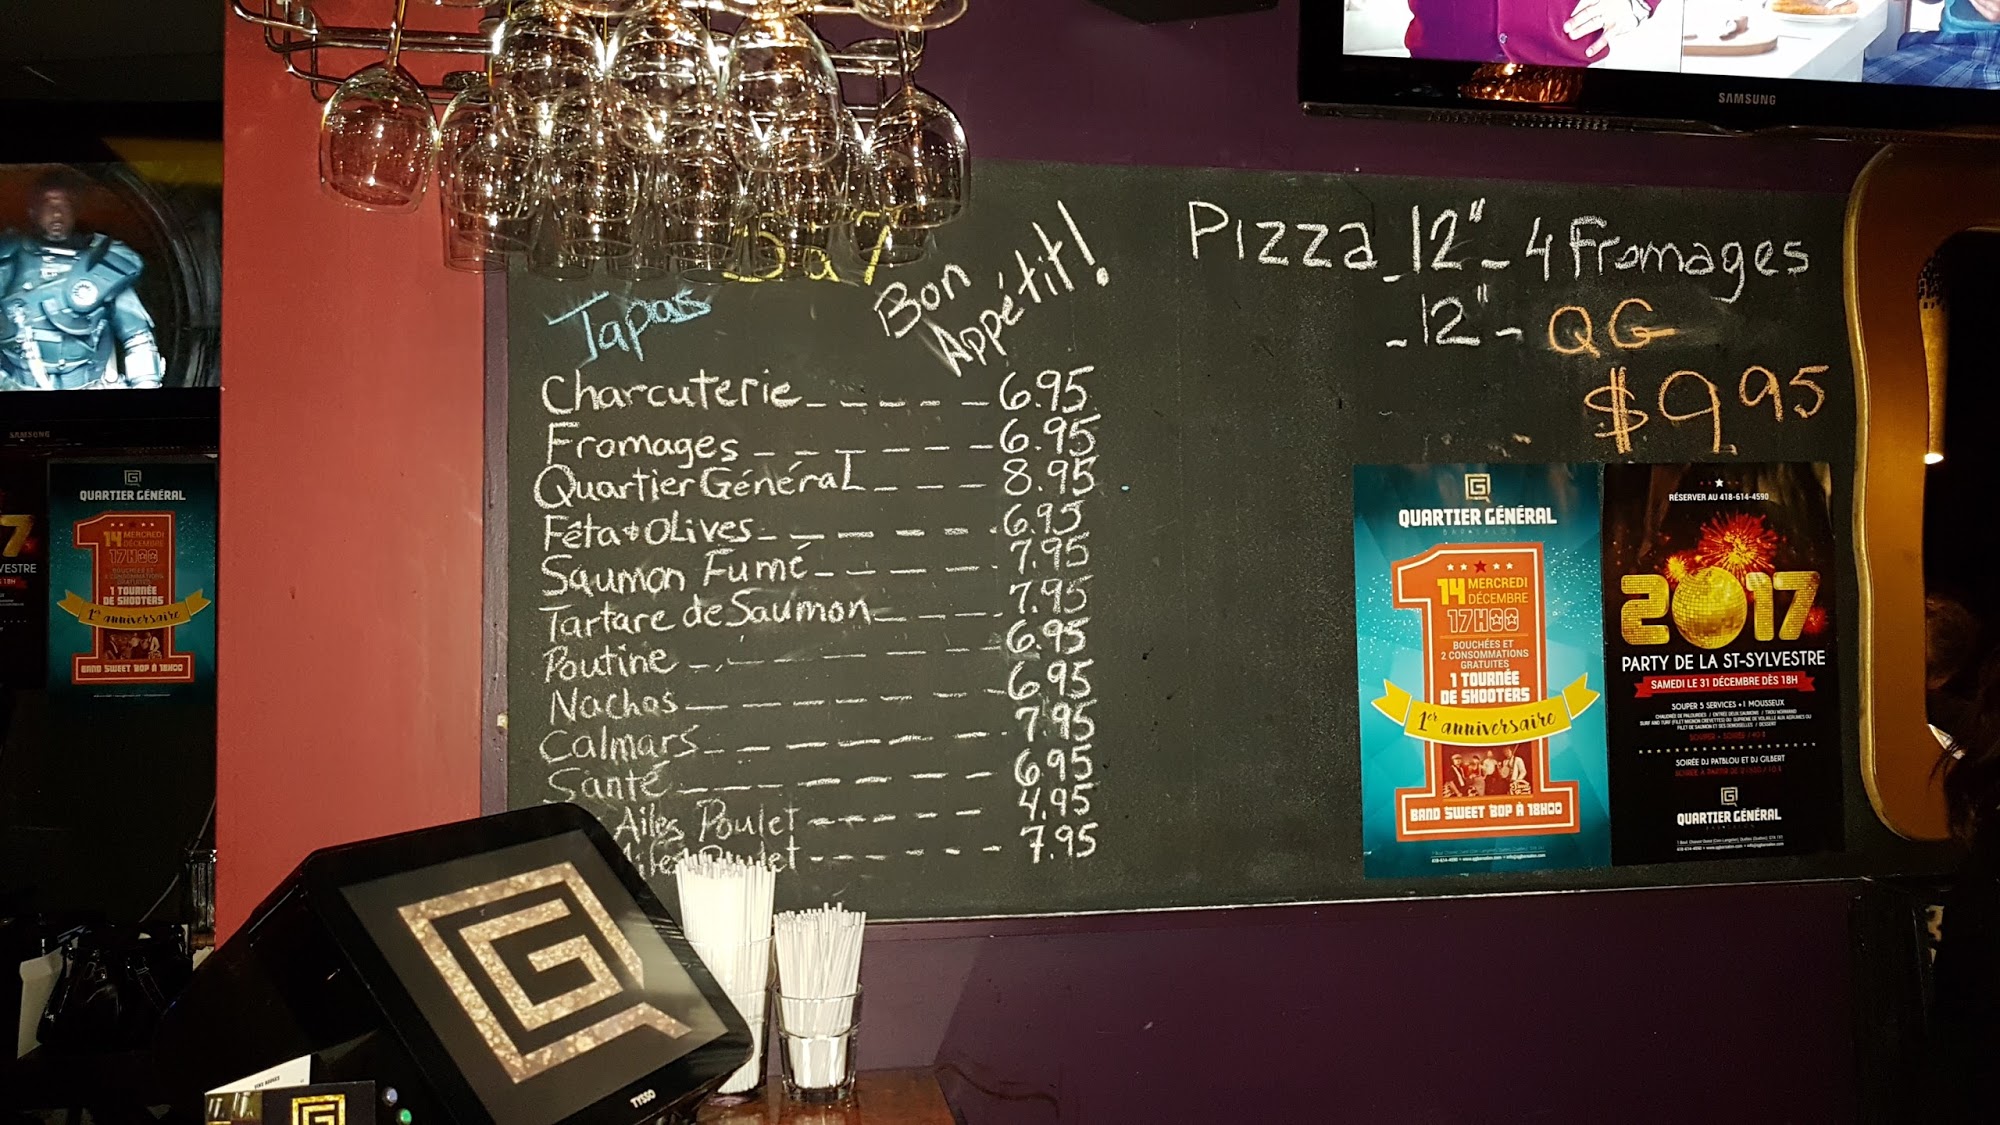 5 à 7
Tapas
Bon
Appétit!
Charcuterie 6.95
Fromages 6.95
Quartier Général 8.95
Fêta+Olives 6.95
Saumon Fumé 7.95
Tartare de Saumon 7.95
Poutine 6.95
Nachos 6.95
Calmars 7.95
Santé 6.95
Ailes Poulet 4.95
Ailes Poulet 7.95
Pizza_12"_4 Fromages
_12"_ QG
$9.95
SAMSUNG
QUARTIER GÉNÉRAL
BAR•SALON
14 MERCREDI
DÉCEMBRE
17H00
BOUCHÉES ET
2 CONSOMMATIONS
GRATUITES
1 TOURNÉE
DE SHOOTERS
1er anniversaire
BAND SWEET BOP À 18H00
RÉSERVER AU 418-614-4590
2017
PARTY DE LA ST-SYLVESTRE
SAMEDI LE 31 DÉCEMBRE DÈS 18H
SOUPER 5 SERVICES +1 MOUSSEUX
SOIRÉE DJ PATBLOU ET DJ GILBERT
QUARTIER GÉNÉRAL
SAMSUNG
QUARTIER GÉNÉRAL
14 MERCREDI
DÉCEMBRE
17H00
BOUCHÉES ET
2 CONSOMMATIONS
GRATUITES
1 TOURNÉE
DE SHOOTERS
1er anniversaire
BAND SWEET BOP À 18H00
QG
TYSSO